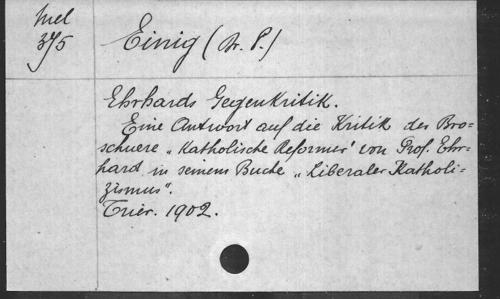 Mel
375
Einig (Dr. P.)
Ehrhards Gegenkritik.
Eine Antwort auf die Kritik der Bro=
schuere „Katholische Reformer' von Prof. Ehr=
hard in seinem Buche „Liberaler Katholi=
zismus".
Trier. 1902.